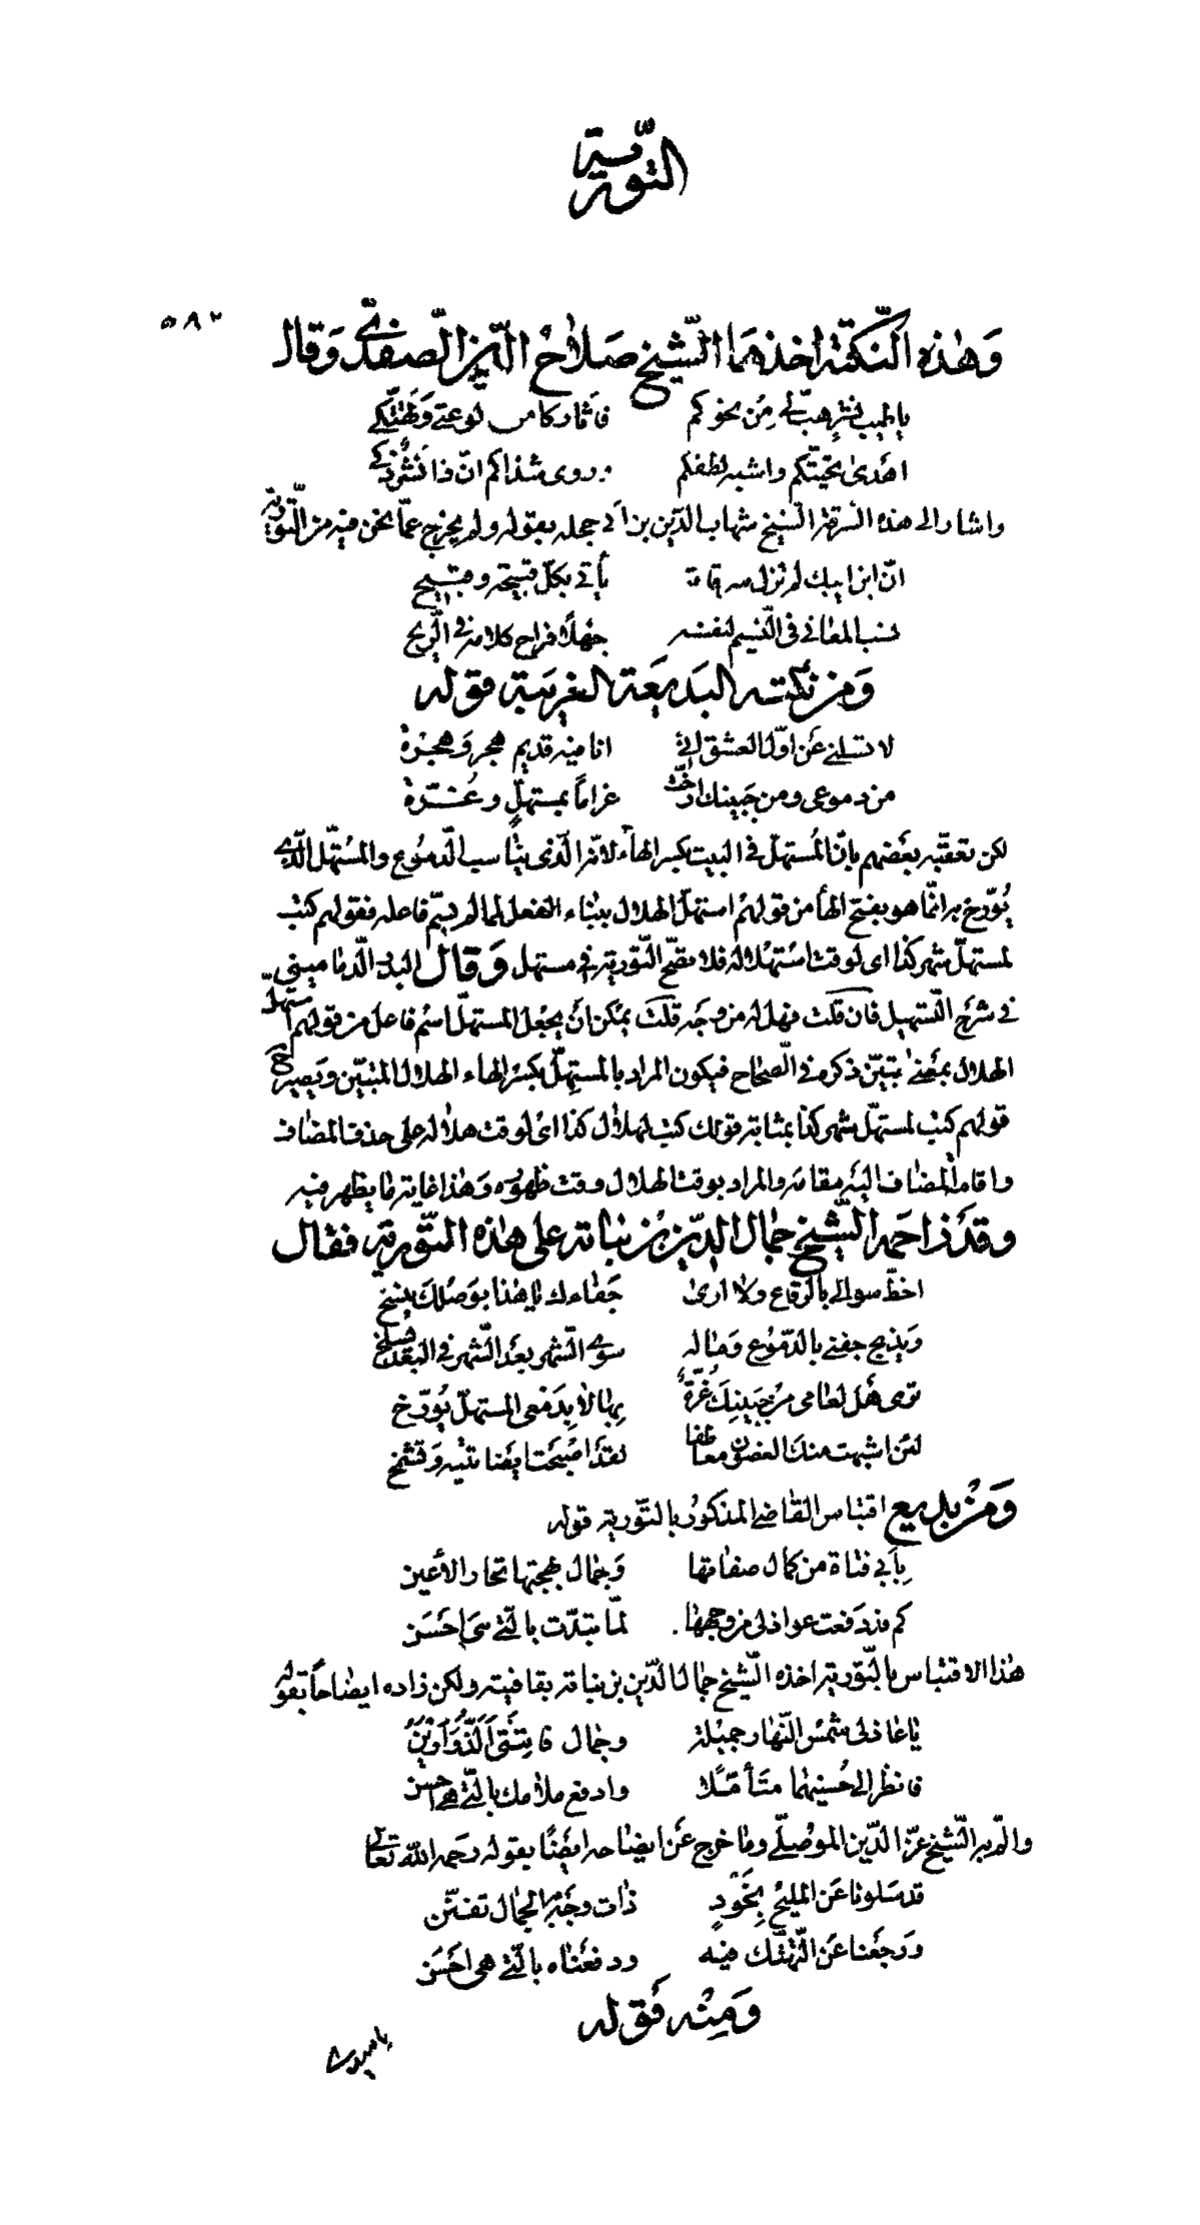 التورية
٥٨٢
وهذه النكتة اخذها الشيخ صلاح الدين الصفدي وقال
يا طيب نشر هب لي من نحوكم فاثار كامن لوعتي وتهتكي
اهدى تحيتكم واشبه لطفكم وروى شذاكم ان ذا نشر ذكي
واشار الى هذه السرقة الشيخ شهاب الدين بن ابي حجلة بقوله ولم يخرج عما نحن فيه من التورية
ان ابن ايبك لم تزل سرقاته يأتي بكل قبيحة وقبيح
نسب المعاني في النسيم لنفسه جهلا فراح كلامه في الريح
ومن نكته البديعة الغريبة قوله
لا تسلني عن اول العشق اني انا فيه قديم هجر وهجرة
من دموعي ومن جبينك ارخت غراما بمستهل وغرة
لكن تعقبه بعضهم بان المستهل في البيت بكسر الهاء لانه الذي يناسب الدموع والمستهل الذي
يؤرخ به انما هو بفتح الهاء من قولهم استهل الهلال ببناء الفعل لما لم يسم فاعله فقولهم كتب
لمستهل شهر كذا اى لوقت استهلاله فلا تصح التورية في مستهل وقال البدر الدماميني
في شرح التسهيل فان قلت فهل له من وجه قلت يمكن ان يجعل المستهل اسم فاعل من قولهم استهل
الهلال بمعنى تبين ذكره في الصحاح فيكون المراد بالمستهل بكسر الهاء الهلال المتبين ويصير ح
قولهم كتب لمستهل شهر كذا بمثابة قولك كتب لهلال كذا اى لوقت هلاله على حذف المضاف
واقامة المضاف اليه مقامه والمراد بوقت الهلال وقت ظهوره وهذا غاية ما يظهر فيه
وقد زاحمه الشيخ جمال الدين بن نباتة على هذه التورية فقال
اخط سوالي بالرقاع ولا ارى جفاءك يا هذا بوصلك ينسخ
ويذبح جفني بالدموع وماله سوى الشهر بعد الشهر في البعد يسلخ
ترى هل لعامي من جبينك غرة بها لا بدمعي المستهل يؤرخ
لئن اشبهت منك الغصون معاطفا لقد اصبحت ايضا تتيه وتشمخ
ومن بديع اقتباس القاضي المذكور بالتورية قوله
بابي فتاة من كمال صفاتها وجمال بهجتها تحار الأعين
كم قد دفعت عواذلي من وجهها لما تبدت بالتي هي احسن
هذا الاقتباس بالتورية اخذه الشيخ جمال الدين بن نباتة بقافيته ولكن زاده ايضاحا بقوله
يا عاذلي شمس النهار جميلة وجمال فاتنتي الذ وازين
فانظر الى حسنيهما متأملا وادفع ملامك بالتي هي احسن
والم به الشيخ عز الدين الموصلي وما خرج عن ايضاحه ايضا بقوله رحمه الله تعالى
قد سلونا عن المليح بخود ذات وجه به الجمال تفنن
ورجعنا عن التهتك فيه ودفعناه بالتي هي احسن
ومنه قوله